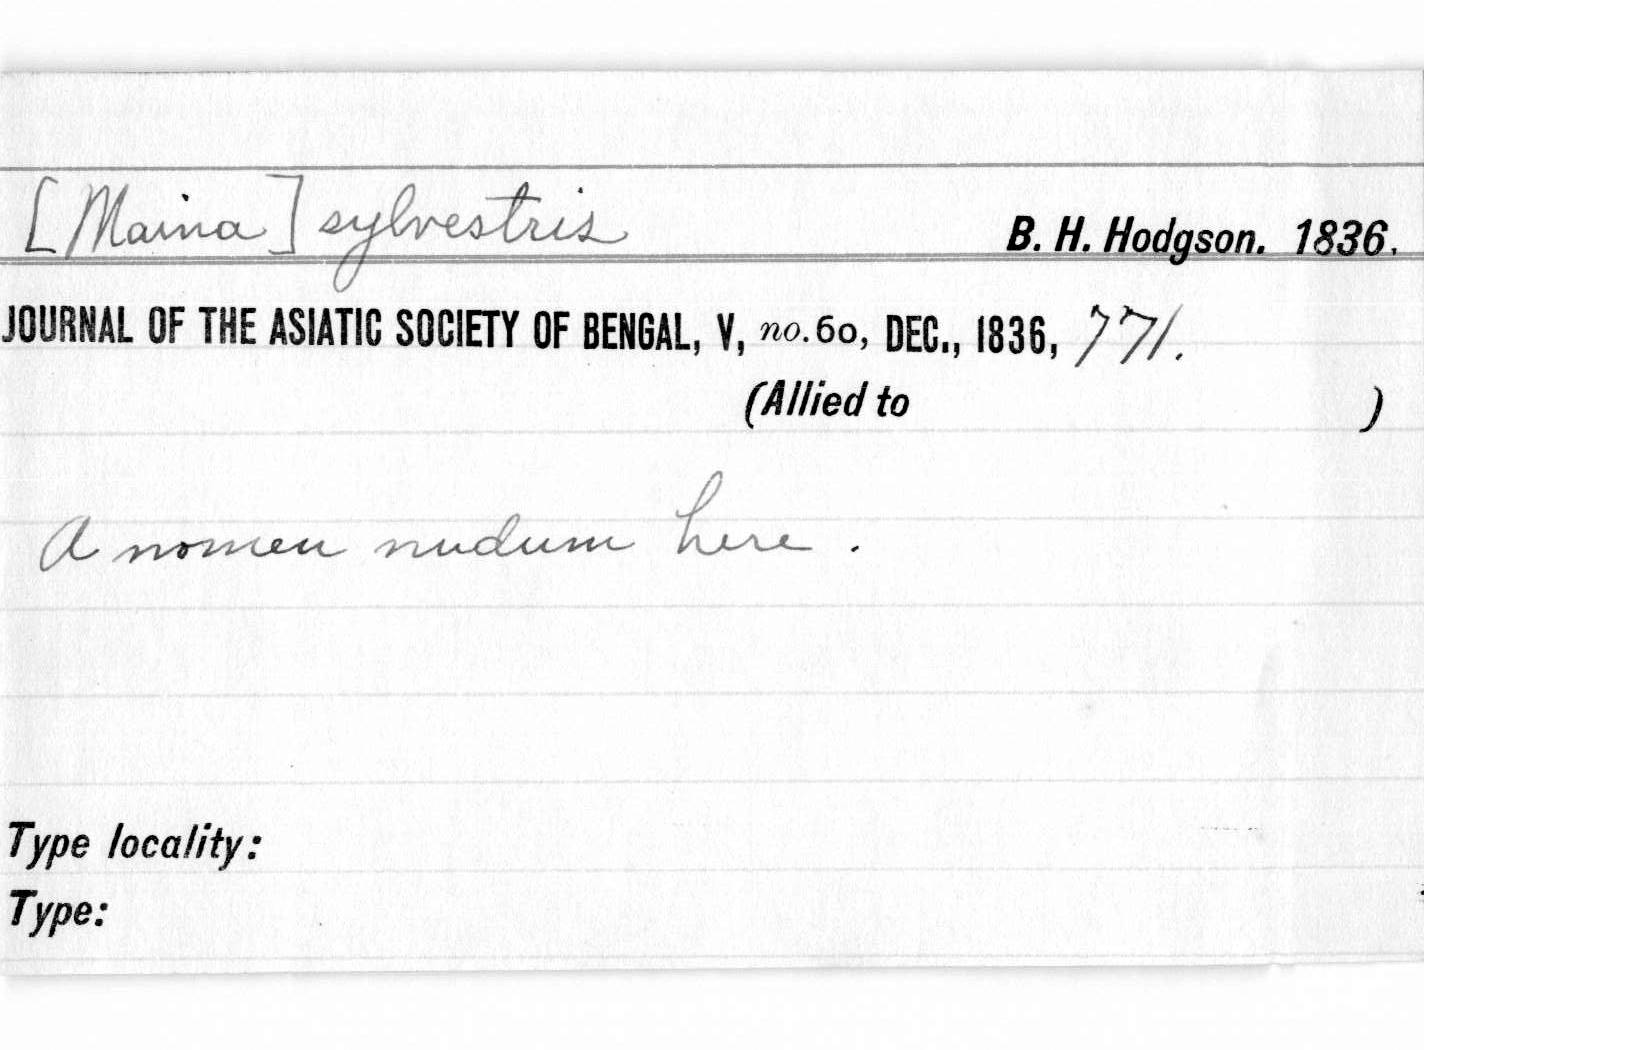 [Maina] sylvestris B. H. Hodgson. 1836.
JOURNAL OF THE ASIATIC SOCIETY OF BENGAL, V, no. 60, DEC., 1836, 771.
(Allied to )
A nomen nudum here.
Type locality:
Type: